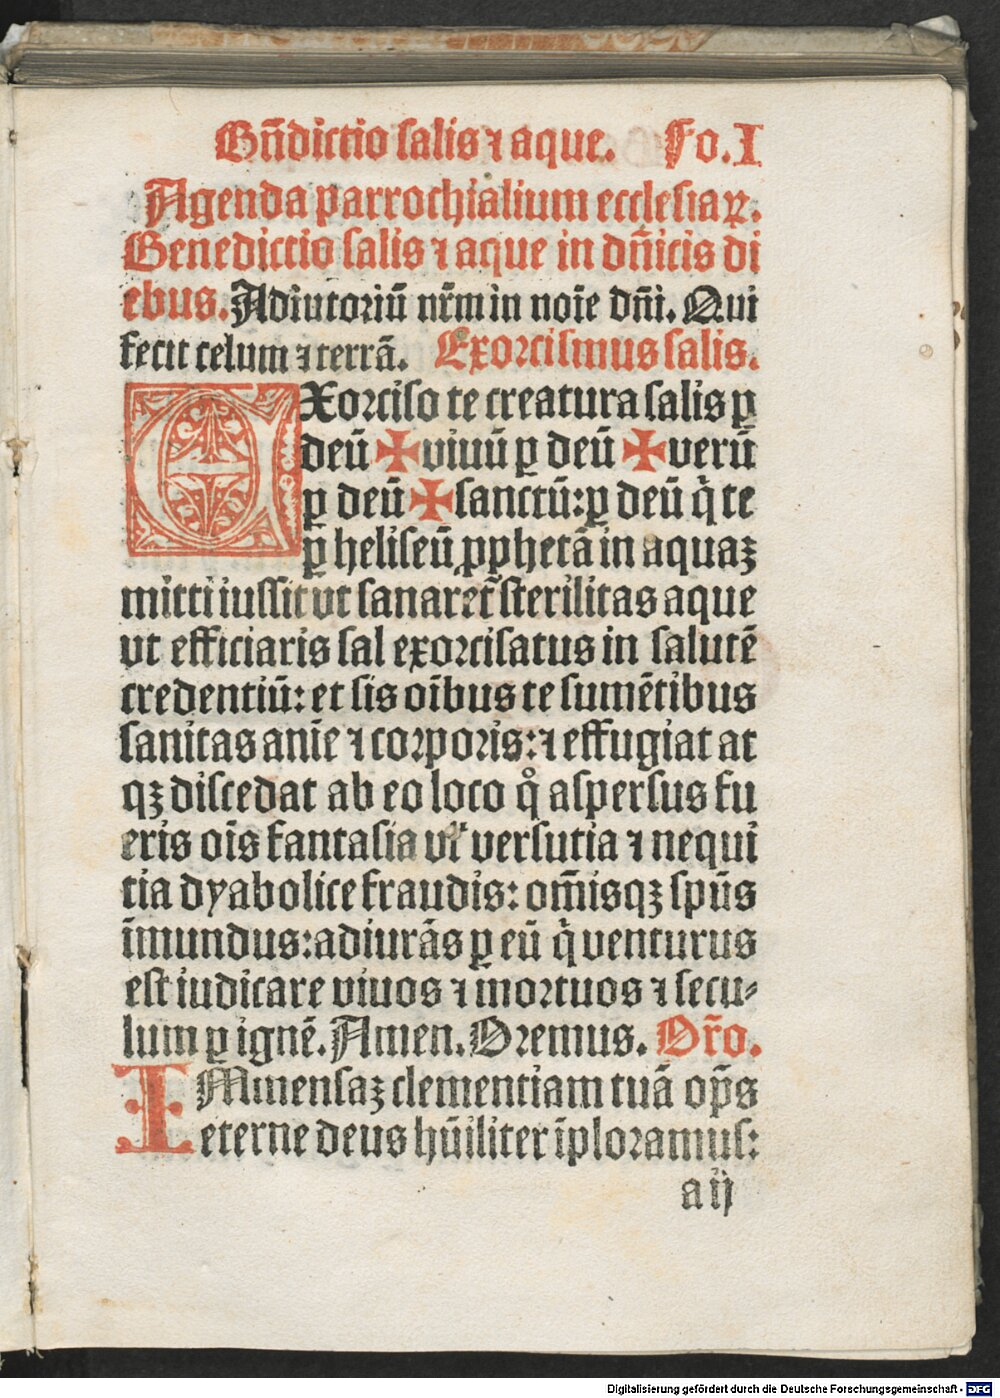 Bñdictio salis ⁊ aque. Fo. I
Agenda parrochialium ecclesiaꝝ.
Benedictio salis ⁊ aque in dñicis di
ebus. Adiutoriū nr̄m in noīe dñi. Qui
fecit celum ⁊ terrā. Exorcismus salis.
EXorciso te creatura salis ꝑ
deū ✠ viuū ꝑ deū ✠ verū
ꝑ deū ✠ sanctū: ꝑ deū qͥ te
ꝑ heliseū ꝓphetā in aquaꝫ
mitti iussit vt sanaret᷑ sterilitas aque
vt efficiaris sal exorcisatus in salutē
credentiū: et sis oībus te sumētibus
sanitas anīe ⁊ corporis: ⁊ effugiat at
qꝫ discedat ab eo loco qͦ aspersus fu
eris oīs fantasia vł versutia ⁊ nequi
tia dyabolice fraudis: om̄isqꝫ spūs
īmundus: adiurās ꝑ eū qͥ venturus
est iudicare viuos ⁊ mortuos ⁊ secu⸗
lum ꝑ ignē. Amen. Oremus. Or̄o.
IMmensaꝫ clementiam tuā op̄s
eterne deus hūiliter īploramus:
a ij
Digitalisierung gefördert durch die Deutsche Forschungsgemeinschaft - DFG